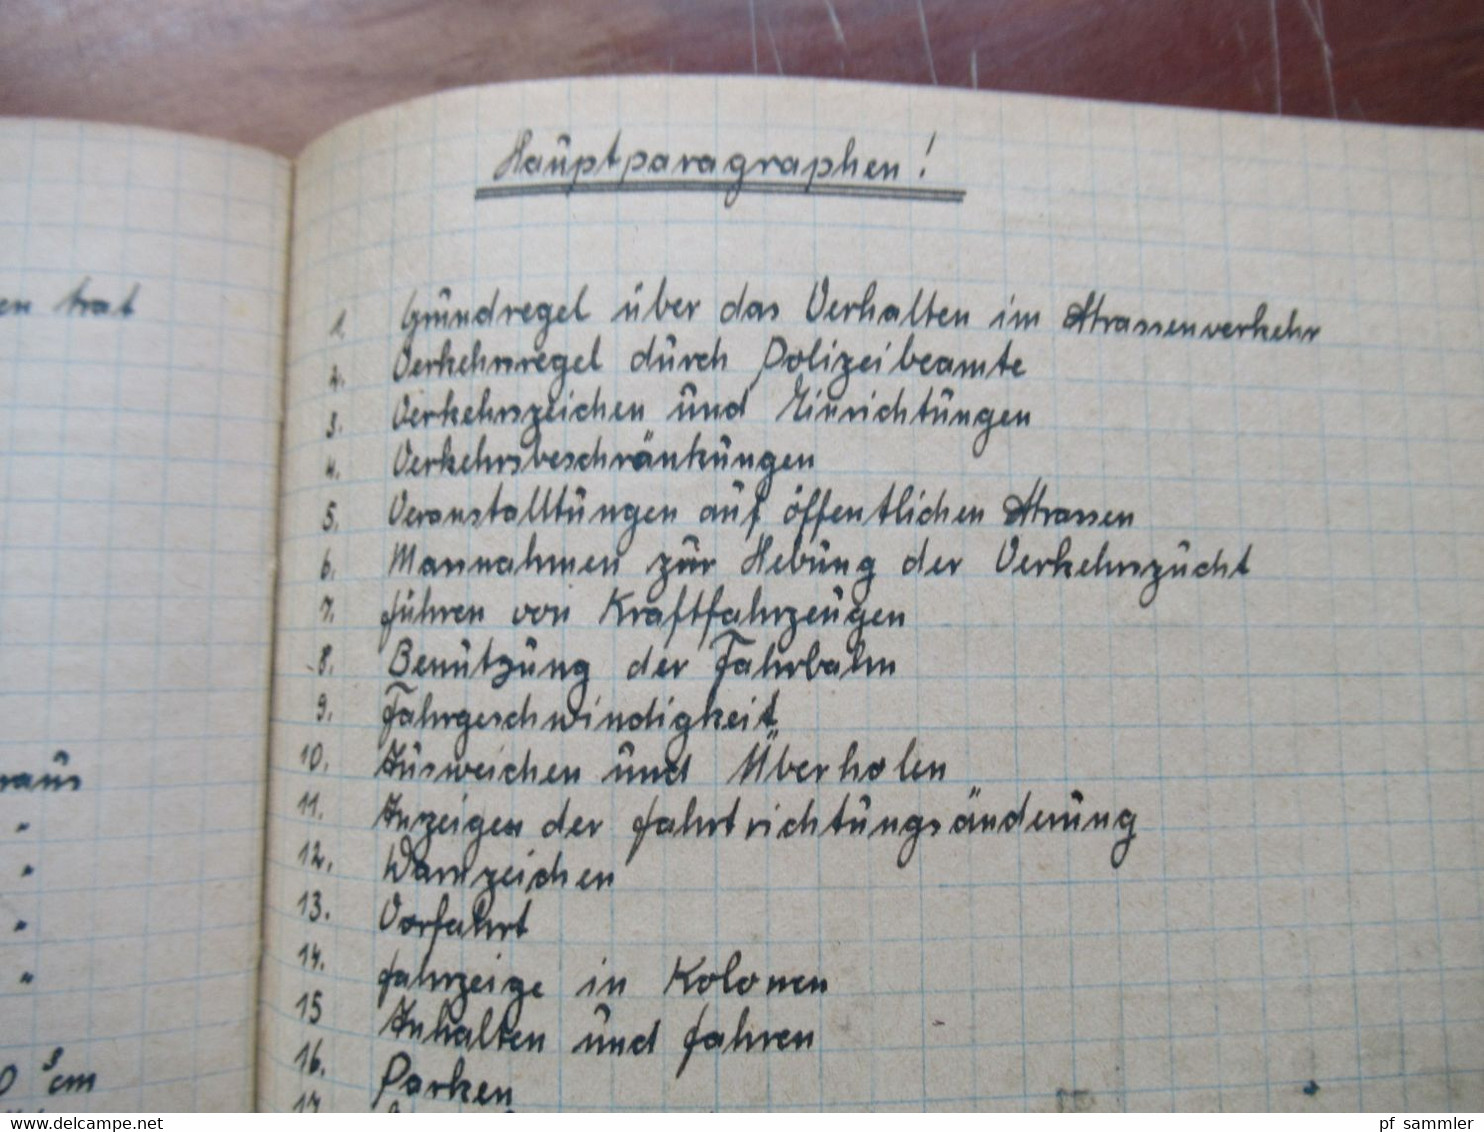 Hauptparagraphen!
en trat
1. Grundregel über das Verhalten im Strassenverkehr
2. Verkehrsregel durch Polizeibeamte
3. Verkehrszeichen und Einrichtungen
4. Verkehrsbeschränkungen
5. Veranstalltungen auf öffentlichen Strassen
6. Massnahmen zur Hebung der Verkehrszucht
7. Führen von Kraftfahrzeugen
8. Benützung der Fahrbahn
9. Fahrgeschwindigkeit
10. Ausweichen und Überholen
raus
11. Anzeigen der Fahrtrichtungsänderung
12. Warnzeichen
13. Vorfahrt
14. Fahrzeige in Kolonen
15 Anhalten und fahren
16. Parken
cm
17.
www.delcampe.net
pf_sammler